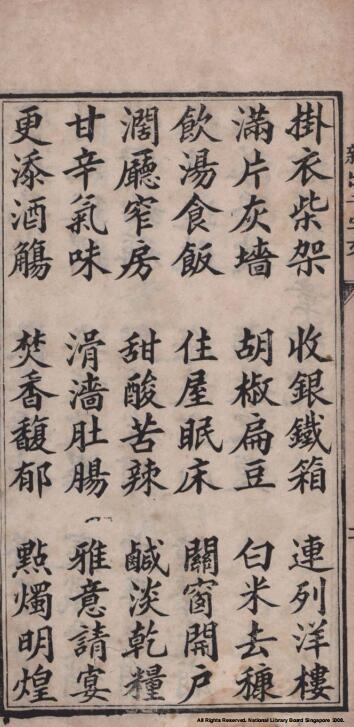 掛衣柴架 收銀鐵箱 連列洋樓
滿片灰墻 胡椒扁豆 白米去糠
飲湯食飯 住屋眠床 關窗開戶
濶廳窄房 甜酸苦辣 鹹淡乾糧
甘辛氣味 滑濇肚腸 雅意請宴
更添酒觴 焚香馥郁 點燭明煌
All Rights Reserved. National Library Board Singapore 2008.